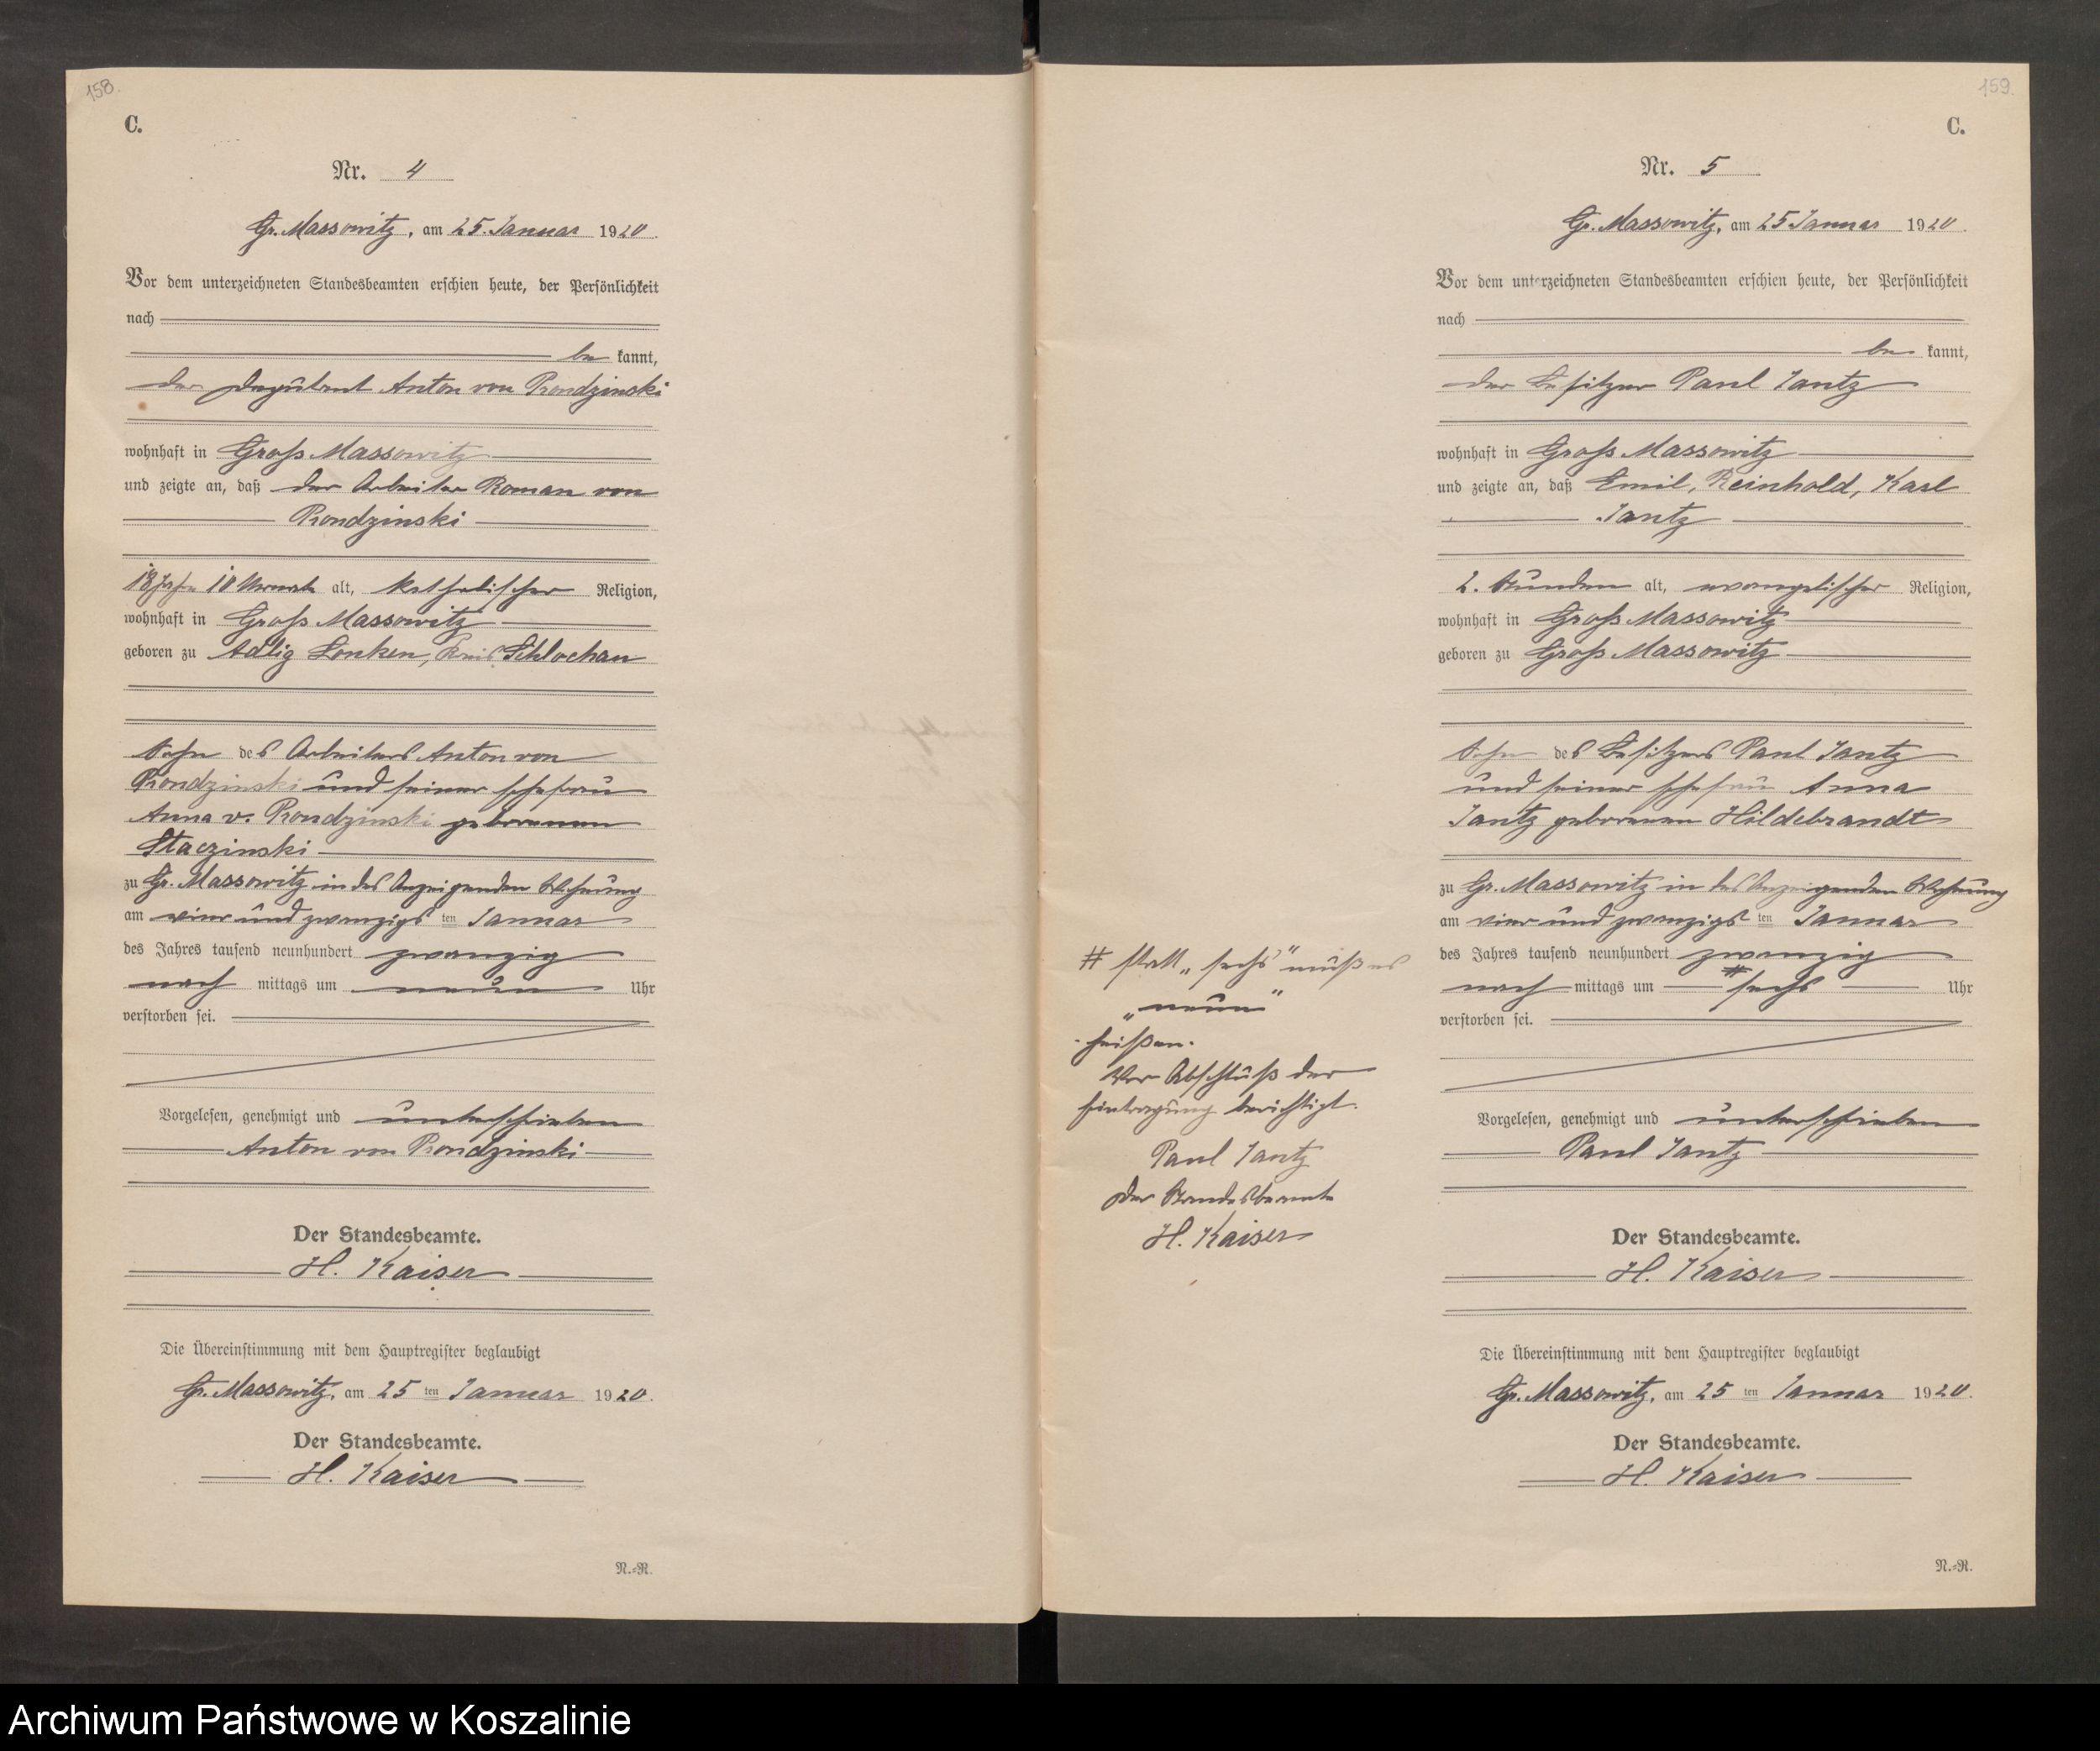 158.
C.
Nr. 4
Gr. Massowitz, am 25. Januar 1920.
Vor dem unterzeichneten Standesbeamten erschien heute, der Persönlichkeit
nach
be kannt,
der Deputant Anton von Prondzincki
wohnhaft in Groß Massowitz
und zeigte an, daß der Arbeiter Roman von
Prondzinski
18 Jahre 10 Monate alt, katholischer Religion,
wohnhaft in Groß Massowitz
geboren zu Adlig Lonken, Kreis Schlochau
Sohn des Arbeiters Anton von
Prondzinski und seiner Ehefrau
Anna v. Prondzinski geborenen
Staczinski
zu Gr. Massowitz in des Anzeigenden Wohnung
am vier und zwanzigsten Januar
des Jahres tausend neunhundert zwanzig
nach mittags um neun Uhr
verstorben sei.
Vorgelesen, genehmigt und unterschrieben
Anton von Prondzinski
Der Standesbeamte.
H. Kaiser
Die Übereinstimmung mit dem Hauptregister beglaubigt
Gr. Massowitz, am 25 ten Januar 1920.
Der Standesbeamte.
H. Kaiser
N.=R.
159.
C.
Nr. 5
Gr. Massowitz, am 25 Januar 1920.
Vor dem unterzeichneten Standesbeamten erschien heute, der Persönlichkeit
nach
be kannt,
der Besitzer Paul Jantz
wohnhaft in Groß Massowitz
und zeigte an, daß Emil, Reinhold, Karl
Jantz
2. Stunden alt, evangelischer Religion,
wohnhaft in Groß Massowitz
geboren zu Groß Massowitz
Sohn des Besitzers Paul Jantz
und seiner Ehefrau Anna
Jantz geborenen Hildebrandt
zu Gr. Massowitz in des Anzeigenden Wohnung
am vier und zwanzigsten Januar
des Jahres tausend neunhundert zwanzig
nach mittags um # sechs Uhr
verstorben sei.
# statt „sechs" muß es
„neun"
heißen.
Vor Abschluß der
Eintragung berichtigt.
Paul Jantz
Der Standesbeamte
H. Kaiser
Vorgelesen, genehmigt und unterschrieben
Paul Jantz
Der Standesbeamte.
H. Kaiser
Die Übereinstimmung mit dem Hauptregister beglaubigt
Gr. Massowitz, am 25 ten Januar 1920.
Der Standesbeamte.
H. Kaiser
N.=R.
Archiwum Państwowe w Koszalinie